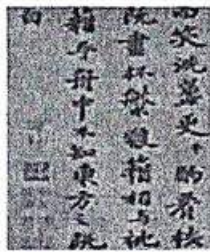 而笑洗盞更酌肴核
既盡杯盤狼籍相與枕
籍乎舟中不知東方之既
白